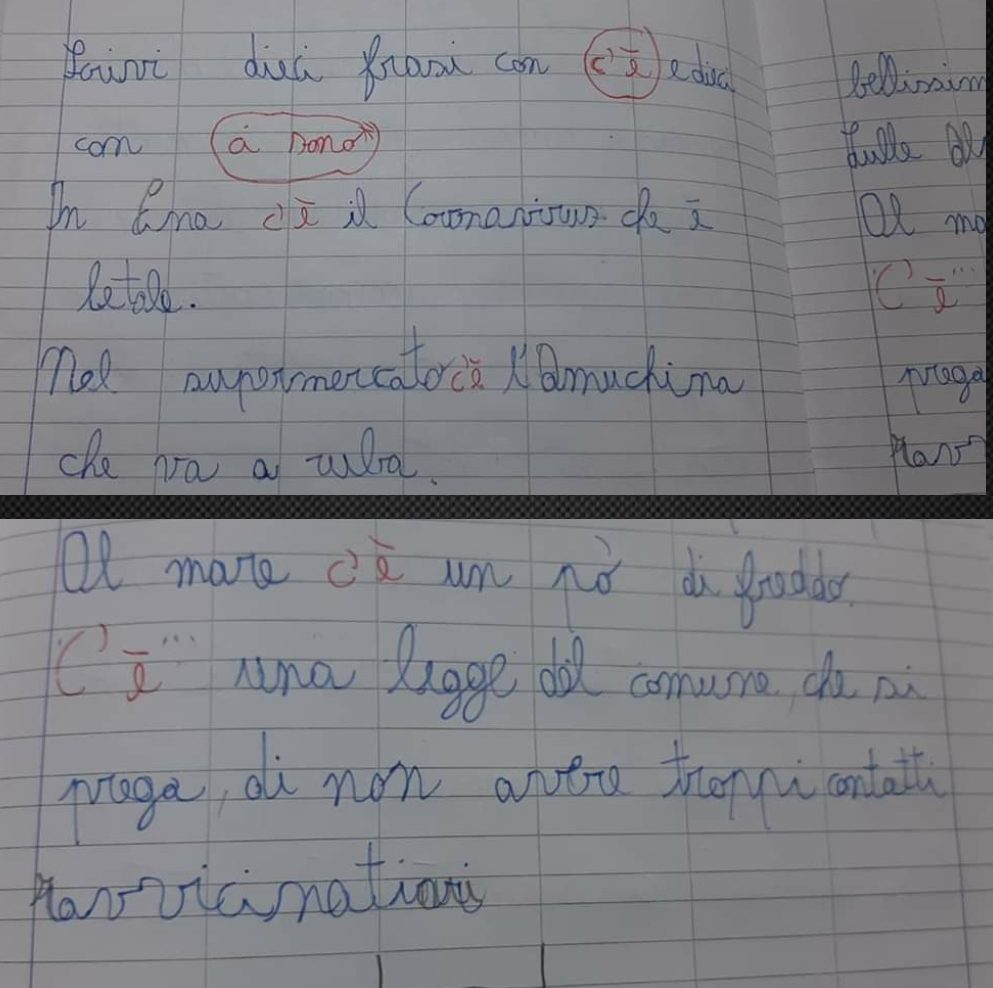 Scrivi dieci frasi con c'è e dieci
con ci sono"
In Cina c'è il Coronavirus che è
letale.
Nel supermercato c'è l'Amuchina
che va a ruba.
bellissim
sulle Al
Al ma
C'è...
prega
ravv
Al mare c'è un pò di freddo.
C'è... una legge del comune, che si
prega, di non avere troppi contatti
ravvicinati